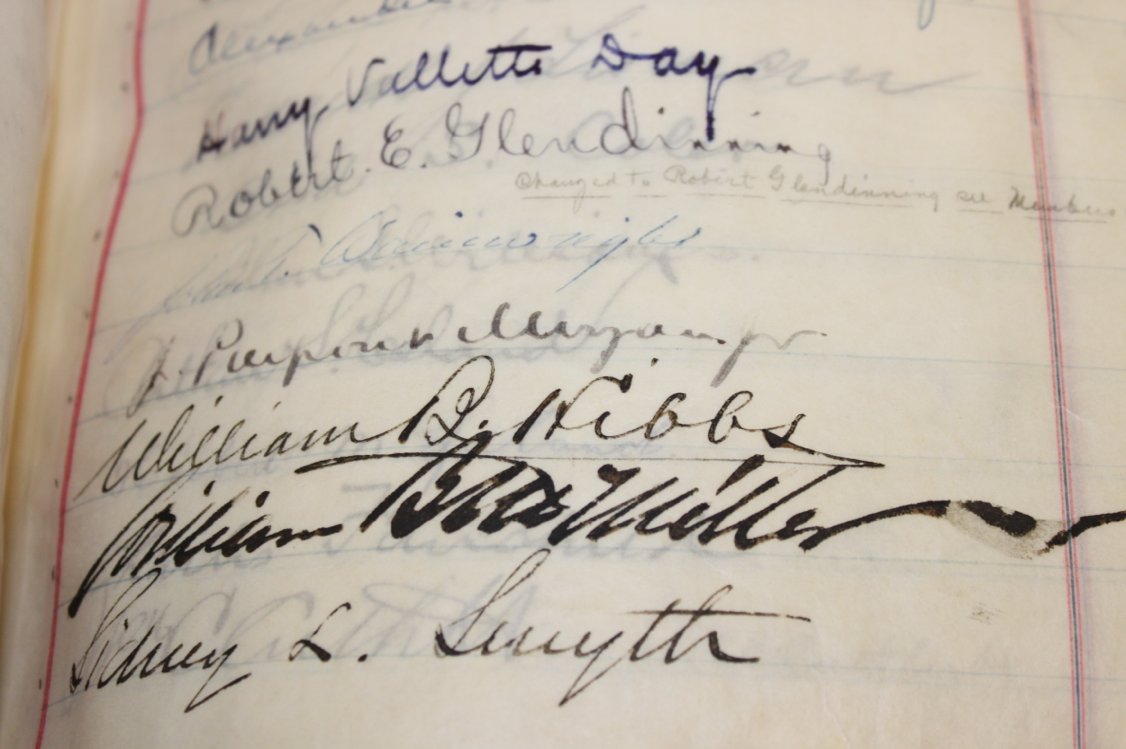 Harry Vallette Day
Robert. E. Glendinning
Changed to Robert Glendinning see Members
Wainwright
J. Pierpont Morgan jr
William B. Hibbs
William Miller
Sidney L. Smyth